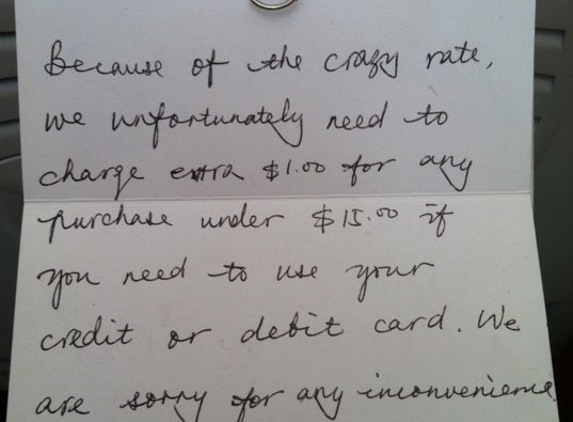 Because of the crazy rate,
we unfortunately need to
charge extra $1.00 for any
purchase under $15.00 if
you need to use your
credit or debit card. We
are sorry for any inconvenience